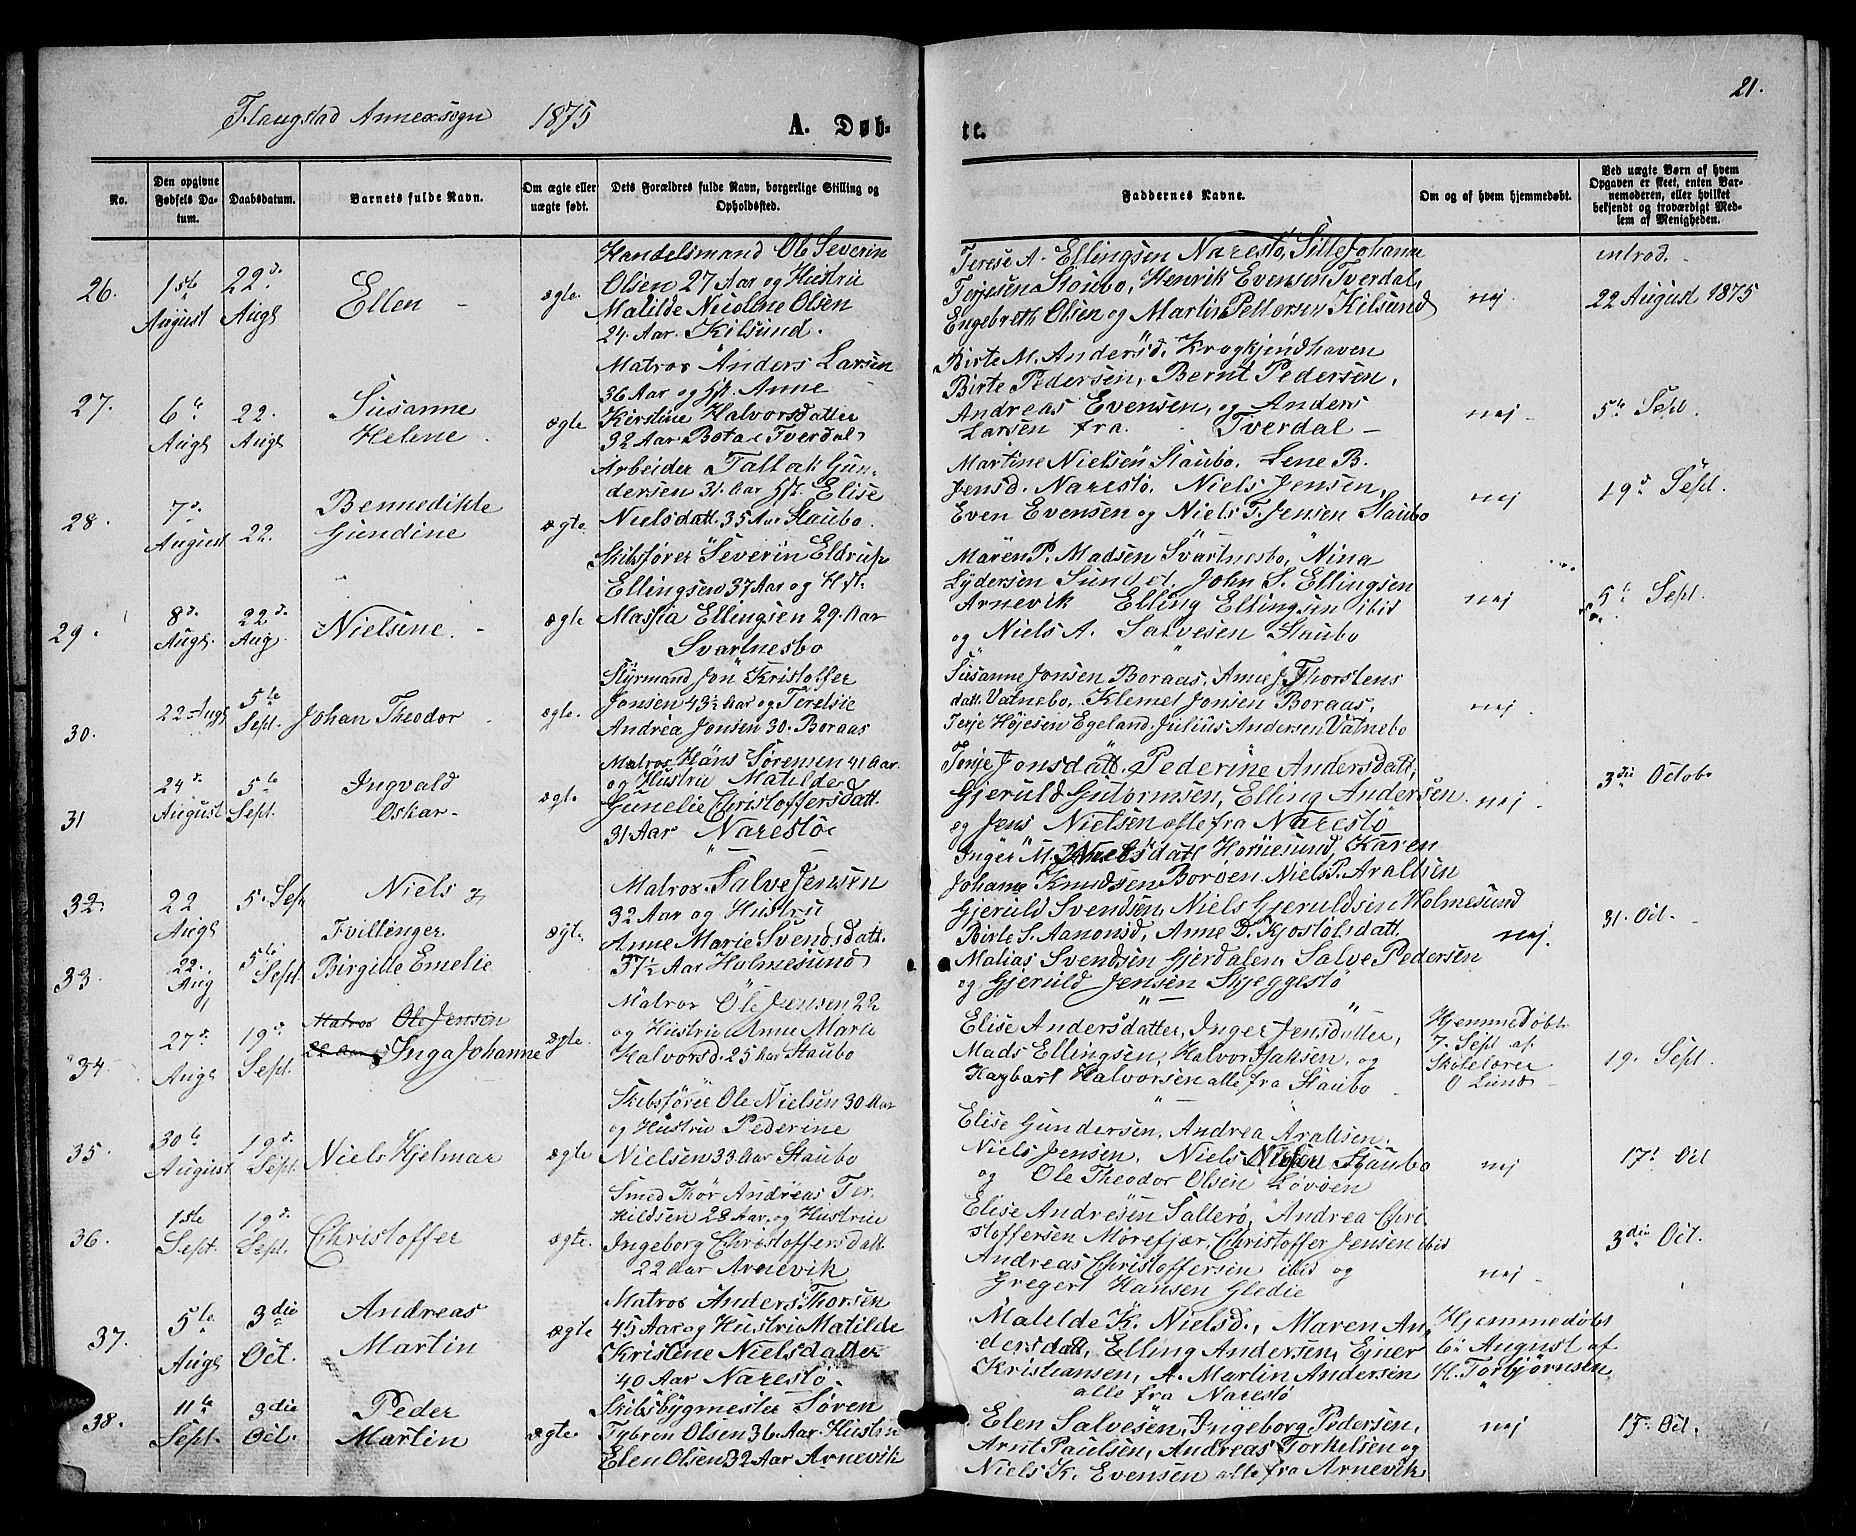 21.
Flangstad Annexsogn 1875 A. Døb-
te.
No.
Den opgivne
Fødsels Da-
tum.
Daabsdatum.
Barnets fulde Navn.
Om ægte eller
uægte født.
Dets Forældres fulde Navn, borgerlige Stilling og
Opholdssted.
Faddernes Navne.
Om og af hvem hjemmedøbt.
Ved uægte Børn af hvem
Opgaven er skeet, enten Bar-
nemoderen, eller hvilket
bekjendt og troværdigt Med-
lem af Menigheden.
26.
1ste
August
22d.
Augs
Ellen
ægte
Handelsmand Ole Severin
Olsen 27 Aar og Hustru
Matilde Nicoline Olsen
24 Aar. Kilsund.
Terese A. Ellingsen Narestö, Sille Johanne
Terjesen Staubo, Henrik Evensen Tverdal,
Engebreth Olsen og Martin Pettersen Kilsund
nej.
introd.
22 August 1875
27.
6te
Augs
22.
Augs
Susanne
Helene
ægte
Matros Anders Larsen
36 Aar og Hst. Anne
Kirstine Halvorsdatter
32 Aar Tverdal
Birte M. Andersd. Krogkjendhaven
Birte Pedersen, Bernt Pedersen,
Andreas Evensen, og Anders
Larsen fra Tverdal
nej
5te Sept.
28.
7d.
August
22.
Bennedikte
Gundine
ægte
Arbeider Tallak Gun-
dersen 31 Aar Hst. Elise
Nielsdatt. 35 Aar Staubo.
Martine Nielsen Staubo. Lene B.
Jensd. Narestö. Niels Jensen,
Even Evensen og Niels T. Jensen Staubo
nej
19d Sept.
29.
8d.
Augs.
22d.
Aug.
Nielsine.
ægte
Skibsfører Severin Eldrup
Ellingsen 37 Aar og Hst.
Massia Ellingsen 29 Aar
Svartnesbo
Maren P. Madsen Svartnesbo, Nina
Lydersen Sundet, John S. Ellingsen
Arnevik Elling Ellingsen ibid
og Niels A. Salvesen Staubo
nej
5te Sept.
30.
22 Augs
5te
Sept.
Johan Theodor
ægte.
Styrmand Jon Kristoffer
Jonsen 43½ Aar og Terelsie
Andrea Jonsen 30. Boraas
Susanne Jonsen Boraas, Anne J. Thorstens
datt. Vatnebo, Klemet Jonsen Boraas,
Terje Höjesen Egeland. Julius Andersen Vatnebo
nej
31
24d.
August
5te
Sept.
Ingvald
Oskar
ægte
Matros Hans Sörensen 41 Aar
og Hustru Matilde
Gunelie Christoffersdatt.
31 Aar Narestö
Terje Jonsdatt, Pederine Andersdatt,
Gjeruld Gutormsen, Elling Andersen
og Jens Nielsen alle fra Narestö
nej
3die Octob
32.
22
Augs
5. Sep
Niels og
Tvillinger.
33.
22.
Aug
5te
Sept.
Birgitte Emelie
ægte.
Matros Salve Jensen
32 Aar og Hustru
Anne Marie Svendsdatt.
37½ Aar Holmesund
Inger M. Nielsdatt Hornesund Karen
Johanne Knudsen Boröen Niels P. Araltsen
Gjeruld Svendsen, Niels Gjeruldsen Holmesund
Birte S. Aanonsd, Anne D. Kjostolsdatt.
Matias Svendsen Gjerdalen, Salve Pedersen
og Gjeruld Jensen Skjeggestö
nej.
31. Oct.
34
27d.
Augs
19d
Sept.
Matros Ole Jensen
22 Aar Inga Johanne
ægte.
Matros Ole Jensen 22
og Hustru Anne Marie
Halvorsd. 25 Aar Staubo
Elise Andersdatter, Inger Jensdatter,
Mads Ellingsen, Halvor Isaksen, og
Hagbart Halvorsen alle fra Staubo
Hjemmedøbt
7. Sept af
Skolelærer
O Lund
19. Sept.
35.
30te
August
19d.
Sept.
Niels Hjelmar
ægte
Skibsfører Ole Nielsen 30 Aar
og Hustru Pederine
Nielsen 33 Aar Staubo
Elise Gundersen, Andrea Araltsen.
Niels Jensen, Niels Nielsen Staubo
og Ole Theodor Olsen Lövöen
nej
17d Oct
36.
1ste
Sept.
19d.
Sept.
Christoffer
ægte.
Smed Thor Andreas Ter-
kildsen 28 Aar og Hustrue
Ingeborg Christoffersdatt.
22 Aar Arnevik
Elise Andresen Salterö, Andrea Chri-
stoffersen Mörefjær, Christoffer Jensen ibid
Andreas Christoffersen ibid og
Gregert Hansen Gledie
nej
3die Oct.
37.
5te
Augs
3die
Oct.
Andreas
Martin
ægte
Matros Anders Thorsen
45 Aar og Hustru Matilde
Kristine Nielsdatter
40 Aar Narestö.
Matelde K. Nielsd., Maren An-
dersdatt, Elling Andersen, Ejner
Kristiansen, A. Martin Andersen
alle fra Narestö
Hjemmedøbt
6te August af
H. Torbjörnsen
38.
11te
Sept.
3die
Oct.
Peder
Martin
ægte.
Skibsbygmester Sören
Tybren Olsen 36 Aar Hustru
Elen Olsen 32 Aar Arnevik
Elen Salvesen, Ingeborg Pedersen,
Arnt Paulsen, Andreas Torkelsen og
Niels K. Evensen alle fra Arnevik
nej
17. Oct.